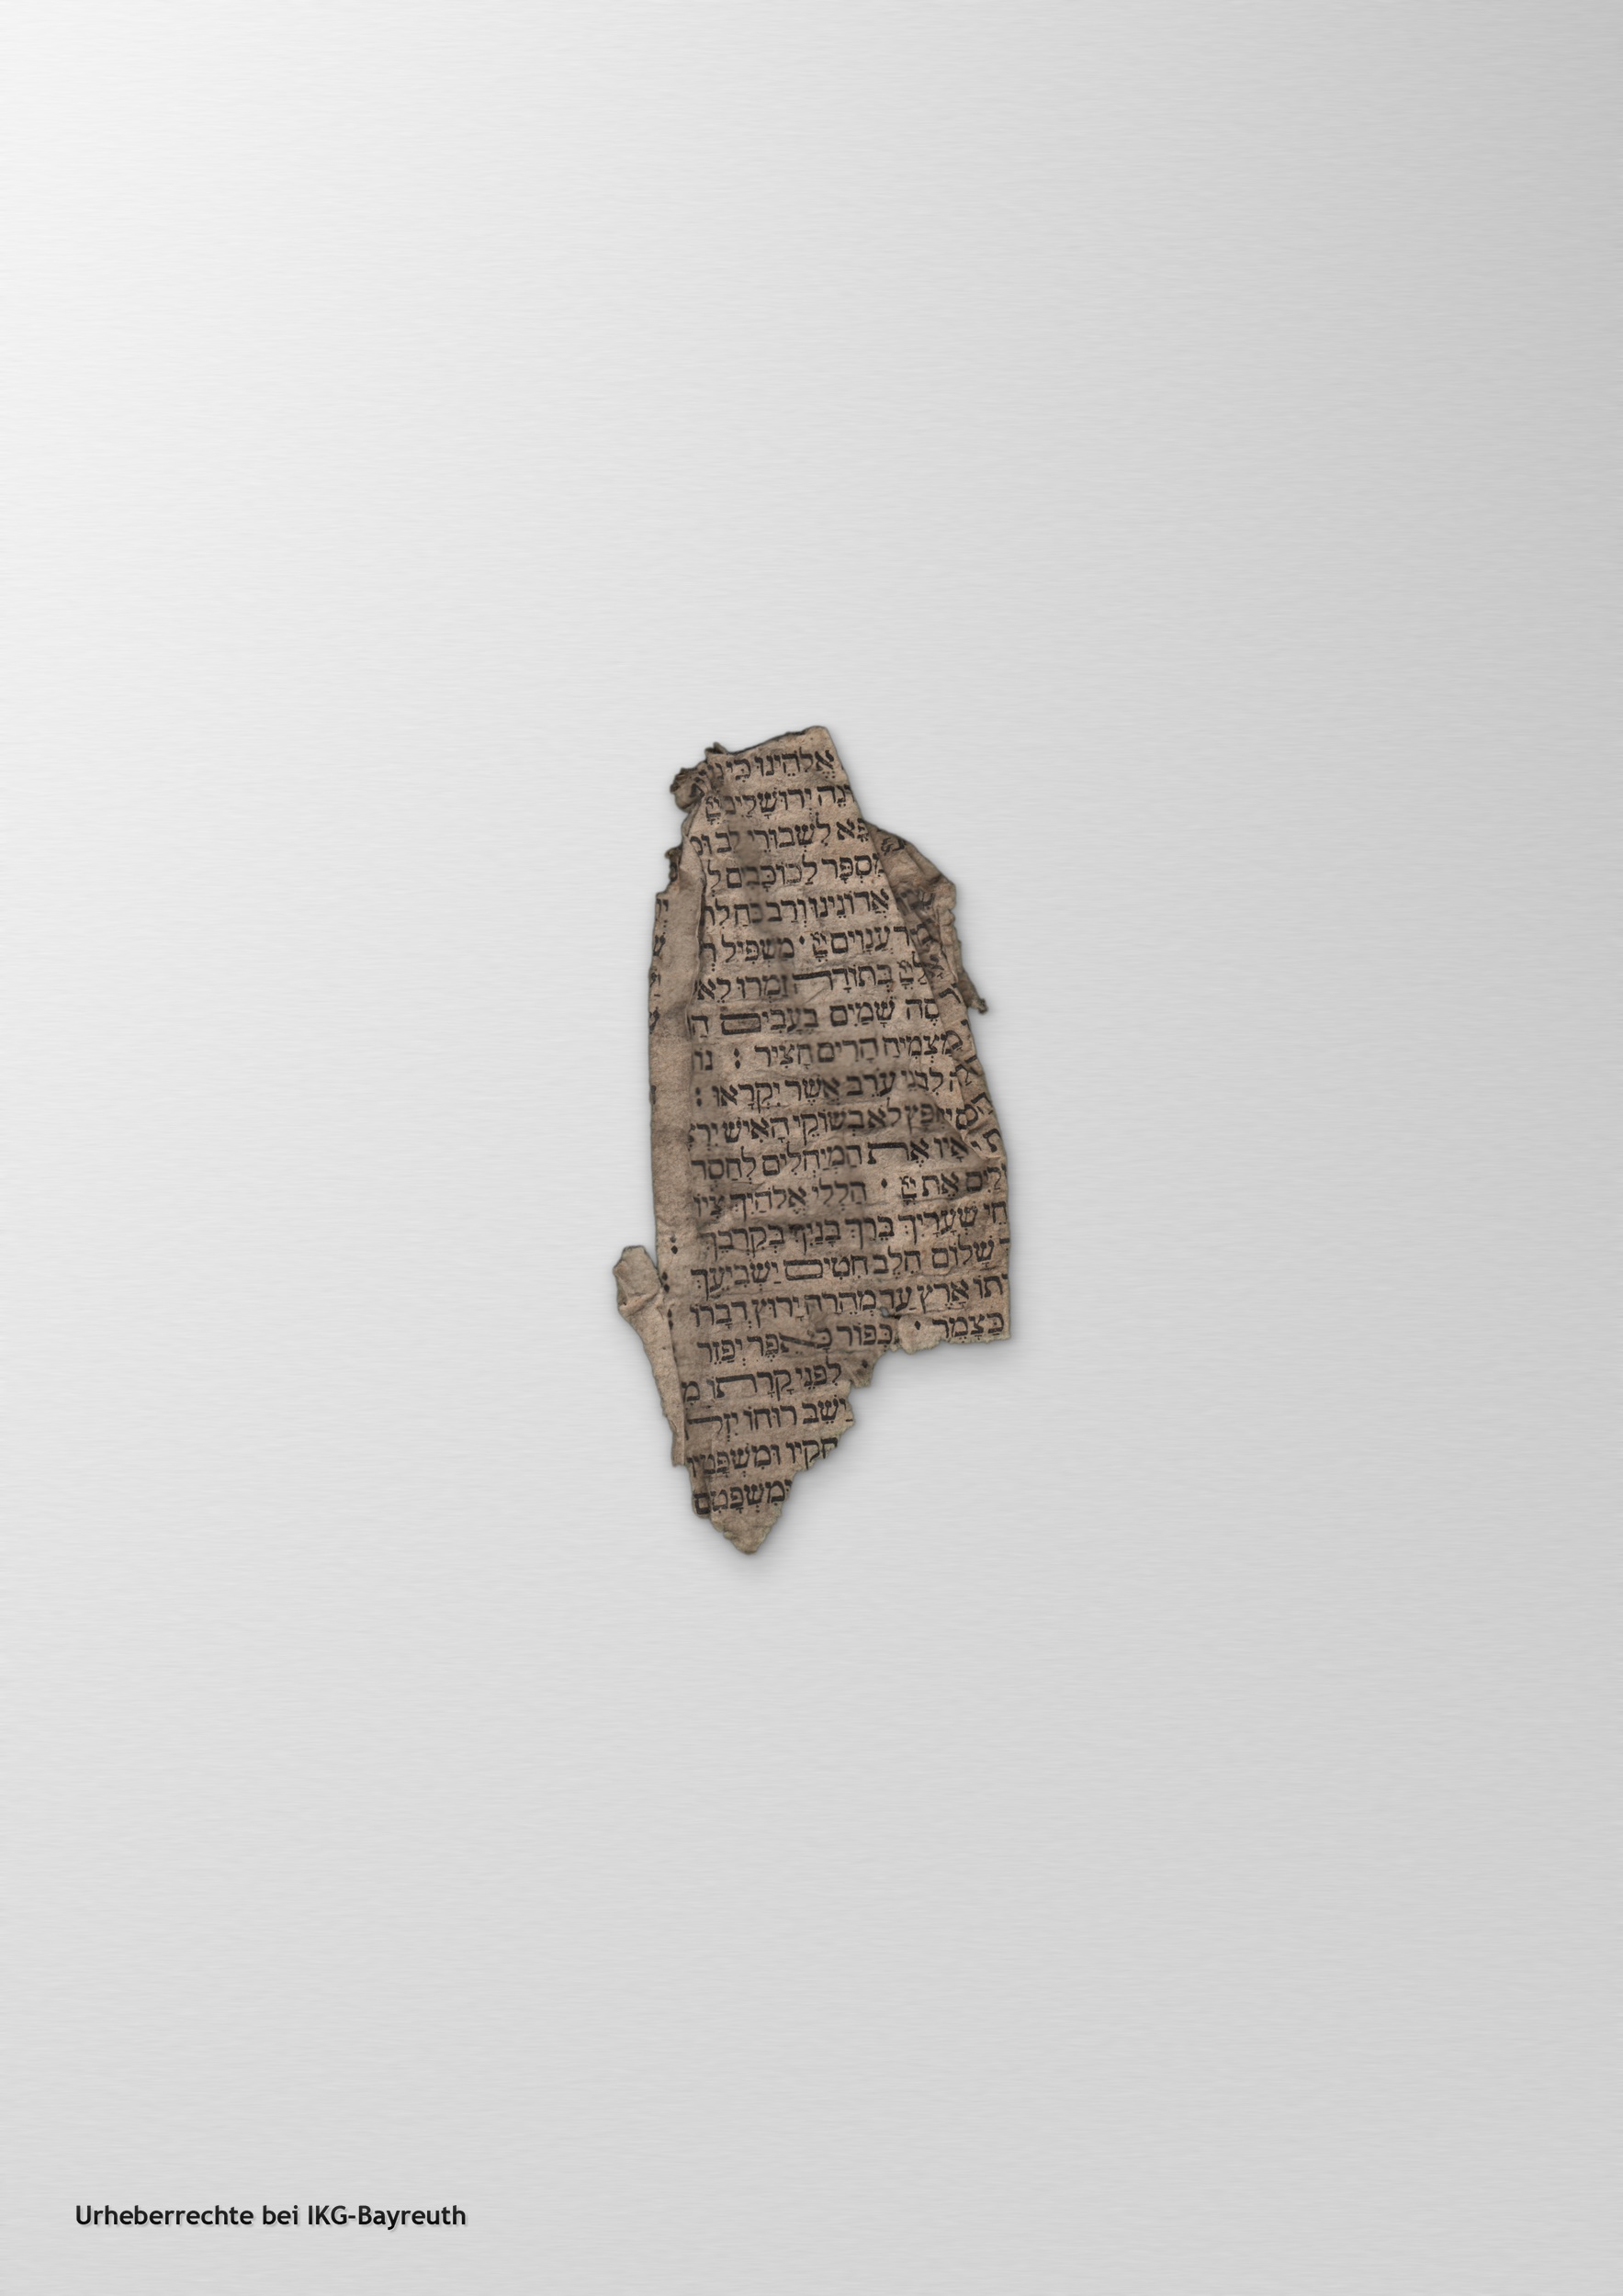 אֱלֹהֵינוּ כִּי
ונֵה יְרוּשָׁלַיִם יְיָ
פֵא לִשְׁבוּרֵי לֵב וּמְ
מִסְפָּר לַכּוֹכָבִים לְ
אֲדוֹנֵינוּ וְרַב כֹּחַ לִת
עֲנָוִים יְיָ · מַשְׁפִּיל ר
בְּתוֹדָה זַמְּרוּ לֵא
סֶה שָׁמַיִם בְּעָבִים הַ
מַצְמִיחַ הָרִים חָצִיר : נוֹ
לִבְנֵי עֹרֵב אֲשֶׁר יִקְרָאוּ :
פָּץ לֹא בְשׁוֹקֵי הָאִישׁ יִר
אָיו אֶת הַמְיַחֲלִים לְחַסְד
לַיִם אֶת יְיָ · הַלְלִי אֱלֹהַיִךְ צִיּוֹ
חֵי שְׁעָרָיִךְ בֵּרַךְ בָּנַיִךְ בְּקִרְבֵּךְ
שָׁלוֹם חֵלֶב חִטִּים יַשְׂבִּיעֵךְ
תוֹ אָרֶץ עַד מְהֵרָה יָרוּץ דְּבָרוֹ
כַּצָּמֶר · כְּפוֹר כָּאֵפֶר יְפַזֵּר
לִפְנֵי קָרָתוֹ מ
יַשֵּׁב רוּחוֹ יִזְּל
חֻקָּיו וּמִשְׁפָּטָיו
וּמִשְׁפָּטִים
Urheberrechte bei IKG-Bayreuth